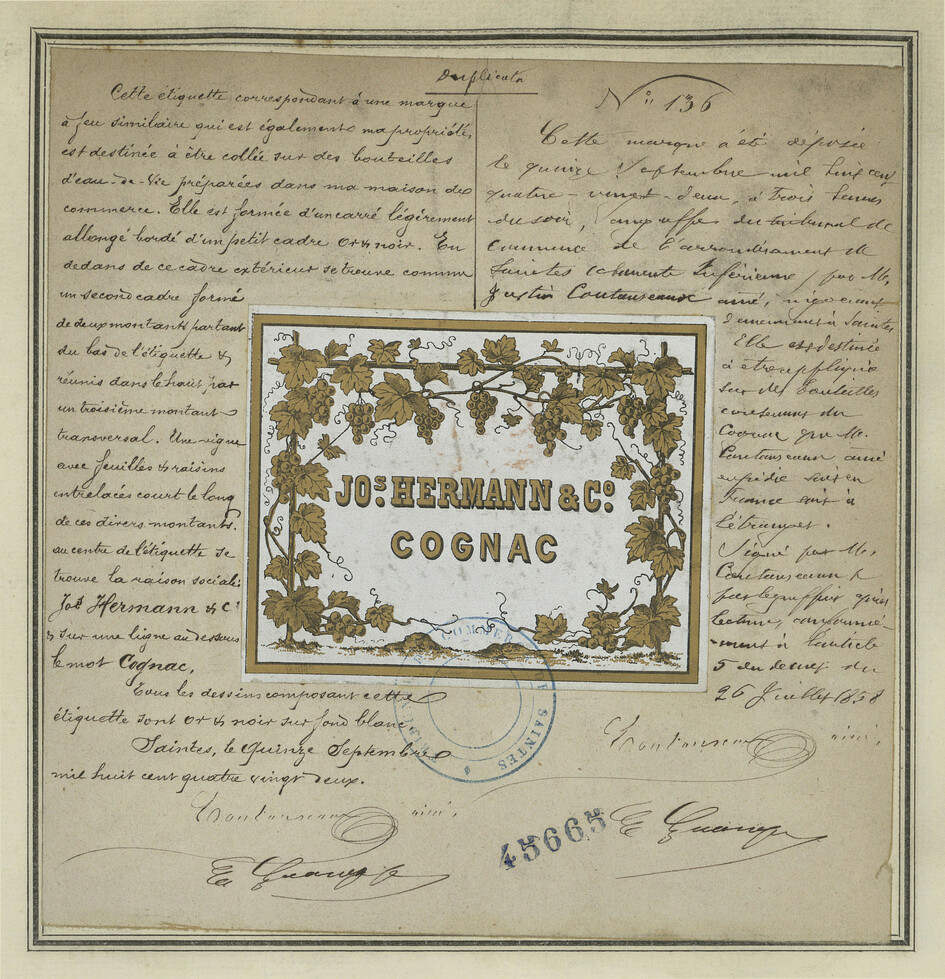 Duplicata
Cette étiquette correspondant à une marque
à feu similaire qui est également ma propriété,
est destinée à être collée sur des bouteilles
d'eau-de-vie préparées dans ma maison de
commerce. Elle est formée d'un carré légèrement
allongé bordé d'un petit cadre or & noir. En
dedans de ce cadre extérieur se trouve comme
un second cadre formé
de deux montants partant
du bas de l'étiquette &
réunis dans le haut par
un troisième montant
transversal. Une vigne
avec feuilles & raisins
entrelacés court le long
de ces divers montants.
au centre de l'étiquette se
trouve la raison sociale:
Jos Hermann & Co
& sur une ligne au dessous
le mot Cognac.
Tous les dessins composant cette
étiquette sont or & noir sur fond blanc
Saintes, le Quinze Septembre
mil huit cent quatre vingt deux.
No. 136
Cette marque a été déposée
le quinze Septembre mil huit cent
quatre-vingt-deux, à trois heures
du soir, au greffe du tribunal de
commerce de l'arrondissement de
Saintes Charente Inférieure, par M.
Justin Coutanseaux aîné, négociant
demeurant à Saintes
Elle est destinée
à être appliquée
sur des bouteilles
contenant du
Cognac que M.
Coutanseaux aîné
expédie soit en
France soit à
l'étranger.
Signé par M.
Coutanseaux &
par le greffier après
lecture, conformé-
-ment à l'article
5 du décret du
26 Juillet 1858
JOS. HERMANN & CO.
COGNAC
COMMERCE
SAINTES
Coutanseaux aîné.
Coutanseaux aîné.
45665